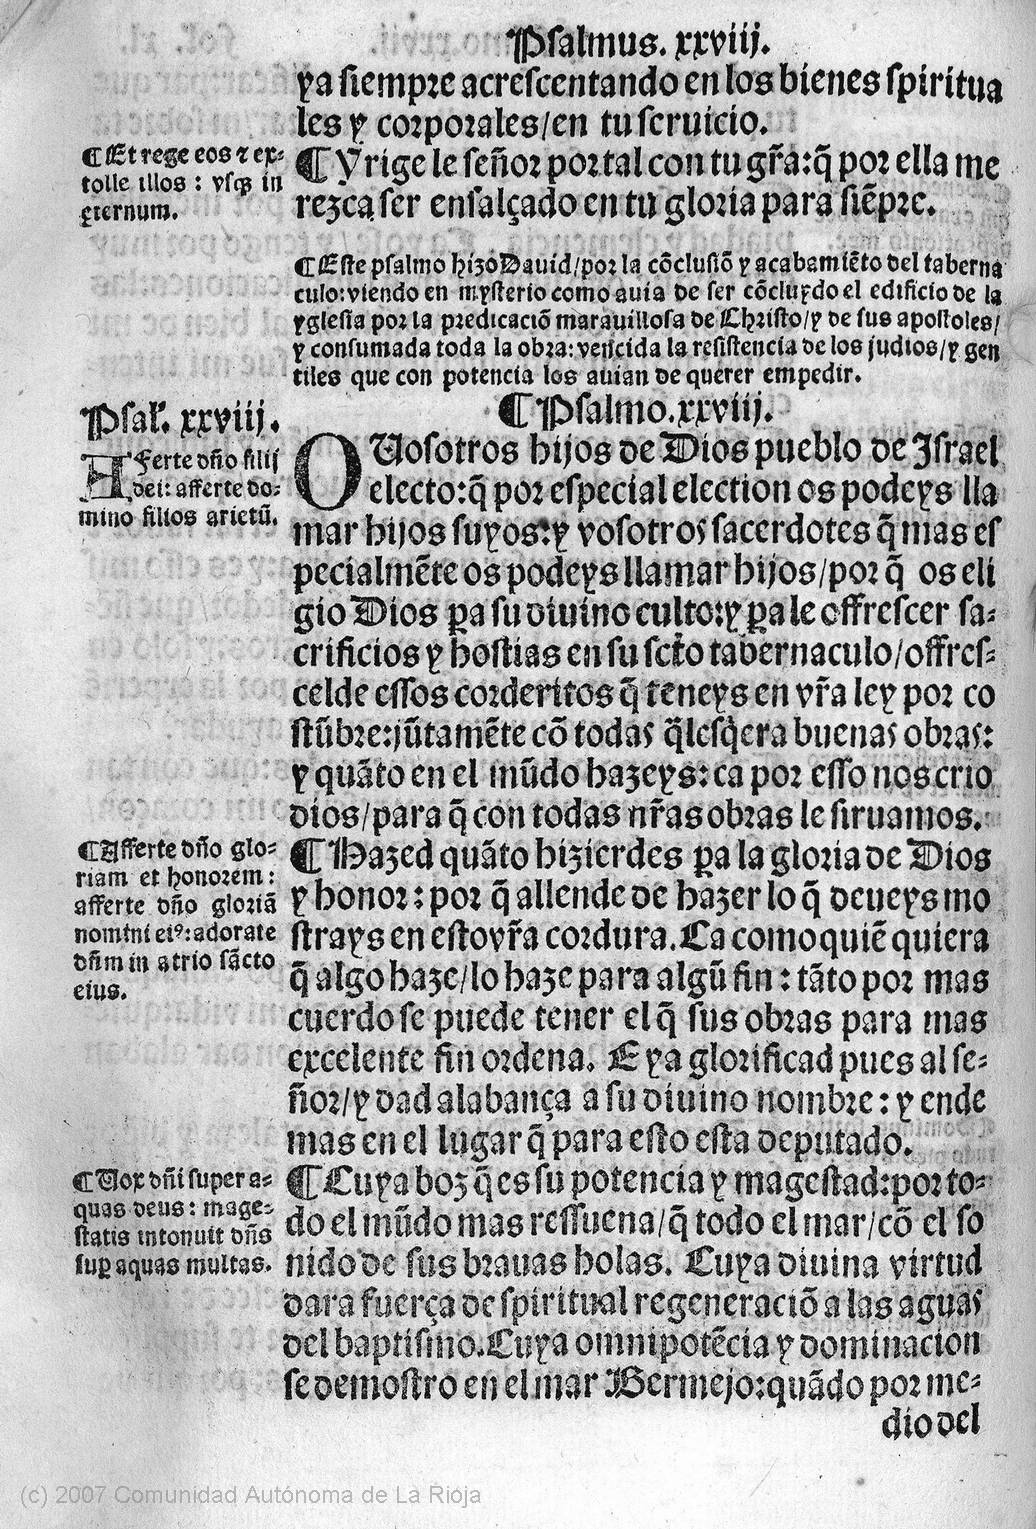 Psalmus. xxviij.
ya siempre acrescentando en los bienes spiritua
les y corporales/en tu seruicio.
¶Et rege eos ⁊ ex-
tolle illos: vsqꝫ in
eternum.
¶Y rige le señor por tal con tu gr̃a:q̃ por ella me
rezca ser ensalçado en tu gloria para siẽpre.
¶Este psalmo hizo Dauid/por la cõclusiõ y acabamiẽto del taberna
culo:viendo en mysterio como auia de ser cõcluydo el edificio de la
yglesia por la predicaciõ marauillosa de Christo/y de sus apostoles/
y consumada toda la obra:vencida la resistencia de los judios/y gen
tiles que con potencia los auian de querer empedir.
¶Psalmo.xxviij.
Psal'. xxviij.
Afferte dño filij
dei: afferte do-
mino filios arietũ.
O Uosotros hijos de Dios pueblo de Israel
electo:q̃ por especial election os podeys lla
mar hijos suyos:y vosotros sacerdotes q̃ mas es
pecialmẽte os podeys llamar hijos/por q̃ os eli
gio Dios ꝑa su diuino culto:y ꝑa le offrescer sa-
crificios y hostias en su sctõ tabernaculo/offres-
celde essos corderitos q̃ teneys en vr̃a ley por co
stũbre:jũtamẽte cõ todas q̃lesq̃era buenas obras:
y quãto en el mũdo hazeys:ca por esso nos crio
dios/para q̃ con todas nr̃as obras le siruamos.
¶Afferte dño glo-
riam et honorem:
afferte dño gloriã
nomini eiꝰ:adorate
dñm in atrio sãcto
eius.
¶Hazed quãto hizierdes ꝑa la gloria de Dios
y honor: por q̃ allende de hazer lo q̃ deueys mo
strays en esto vr̃a cordura. Ca como quiẽ quiera
q̃ algo haze/lo haze para algũ fin: tãto por mas
cuerdo se puede tener el q̃ sus obras para mas
excelente fin ordena. Eya glorificad pues al se-
ñor/y dad alabança a su diuino nombre: y ende
mas en el lugar q̃ para esto esta deputado.
¶Uox dñi super a-
quas deus: mage-
statis intonuit dñs
suꝑ aquas multas.
¶Cuya boz q̃ es su potencia y magestad:por to-
do el mũdo mas ressuena/q̃ todo el mar/cõ el so
nido de sus brauas holas. Cuya diuina virtud
dara fuerça de spiritual regeneraciõ a las aguas
del baptismo. Cuya omnipotẽcia y dominacion
se demostro en el mar Bermejo:quãdo por me-
dio del
(c) 2007 Comunidad Autónoma de La Rioja